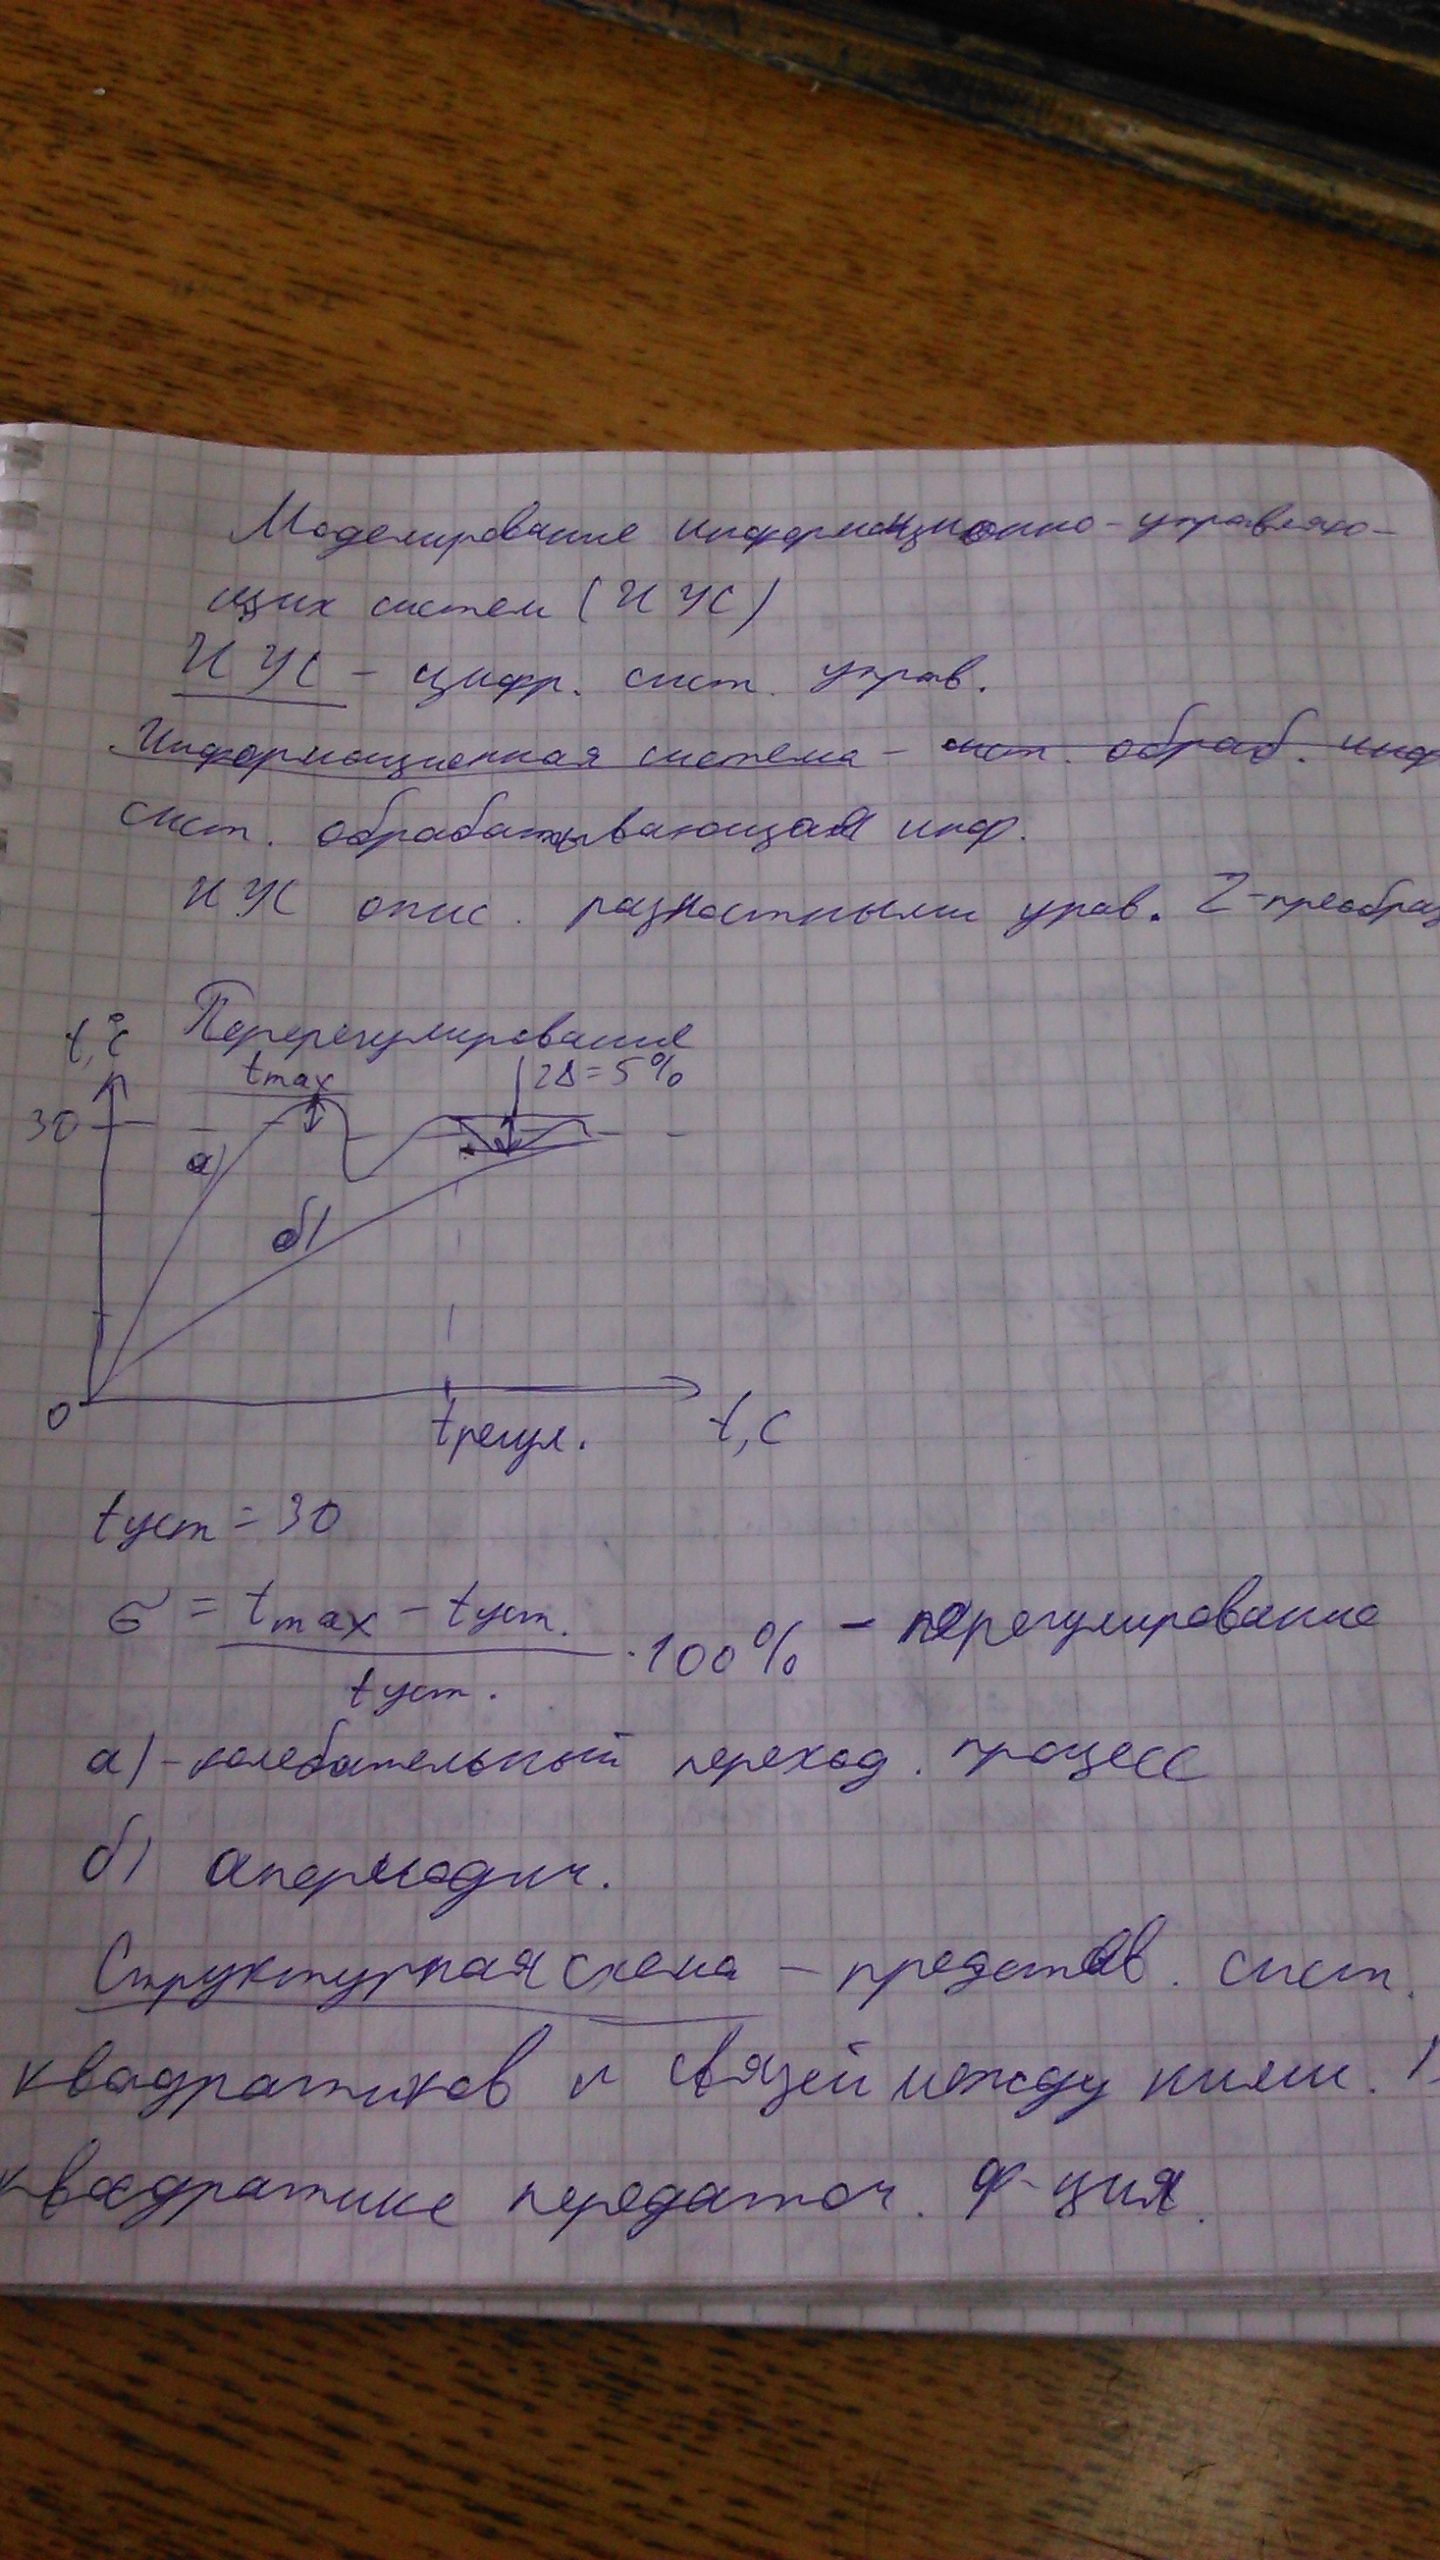 Моделирование информационно-управляю-
щих систем (ИУС)
ИУС - цифр. сист. управ.
Информационная система - сист. обраб. инф
сист. обрабатывающая инф.
ИУС опис. разностными урав. Z-преобраз
t,°C Перерегулирование
tmax 2Δ=5%
30
а)
б)
0
tрегул. t,c
tуст = 30
σ = (tmax - tуст.) / tуст. · 100% - перерегулирование
а) - колебательный переход. процесс
б) апериодич.
Структурная схема - представ. сист.
квадратиков и связей между ними.
квадратике передаточ. ф-ция.